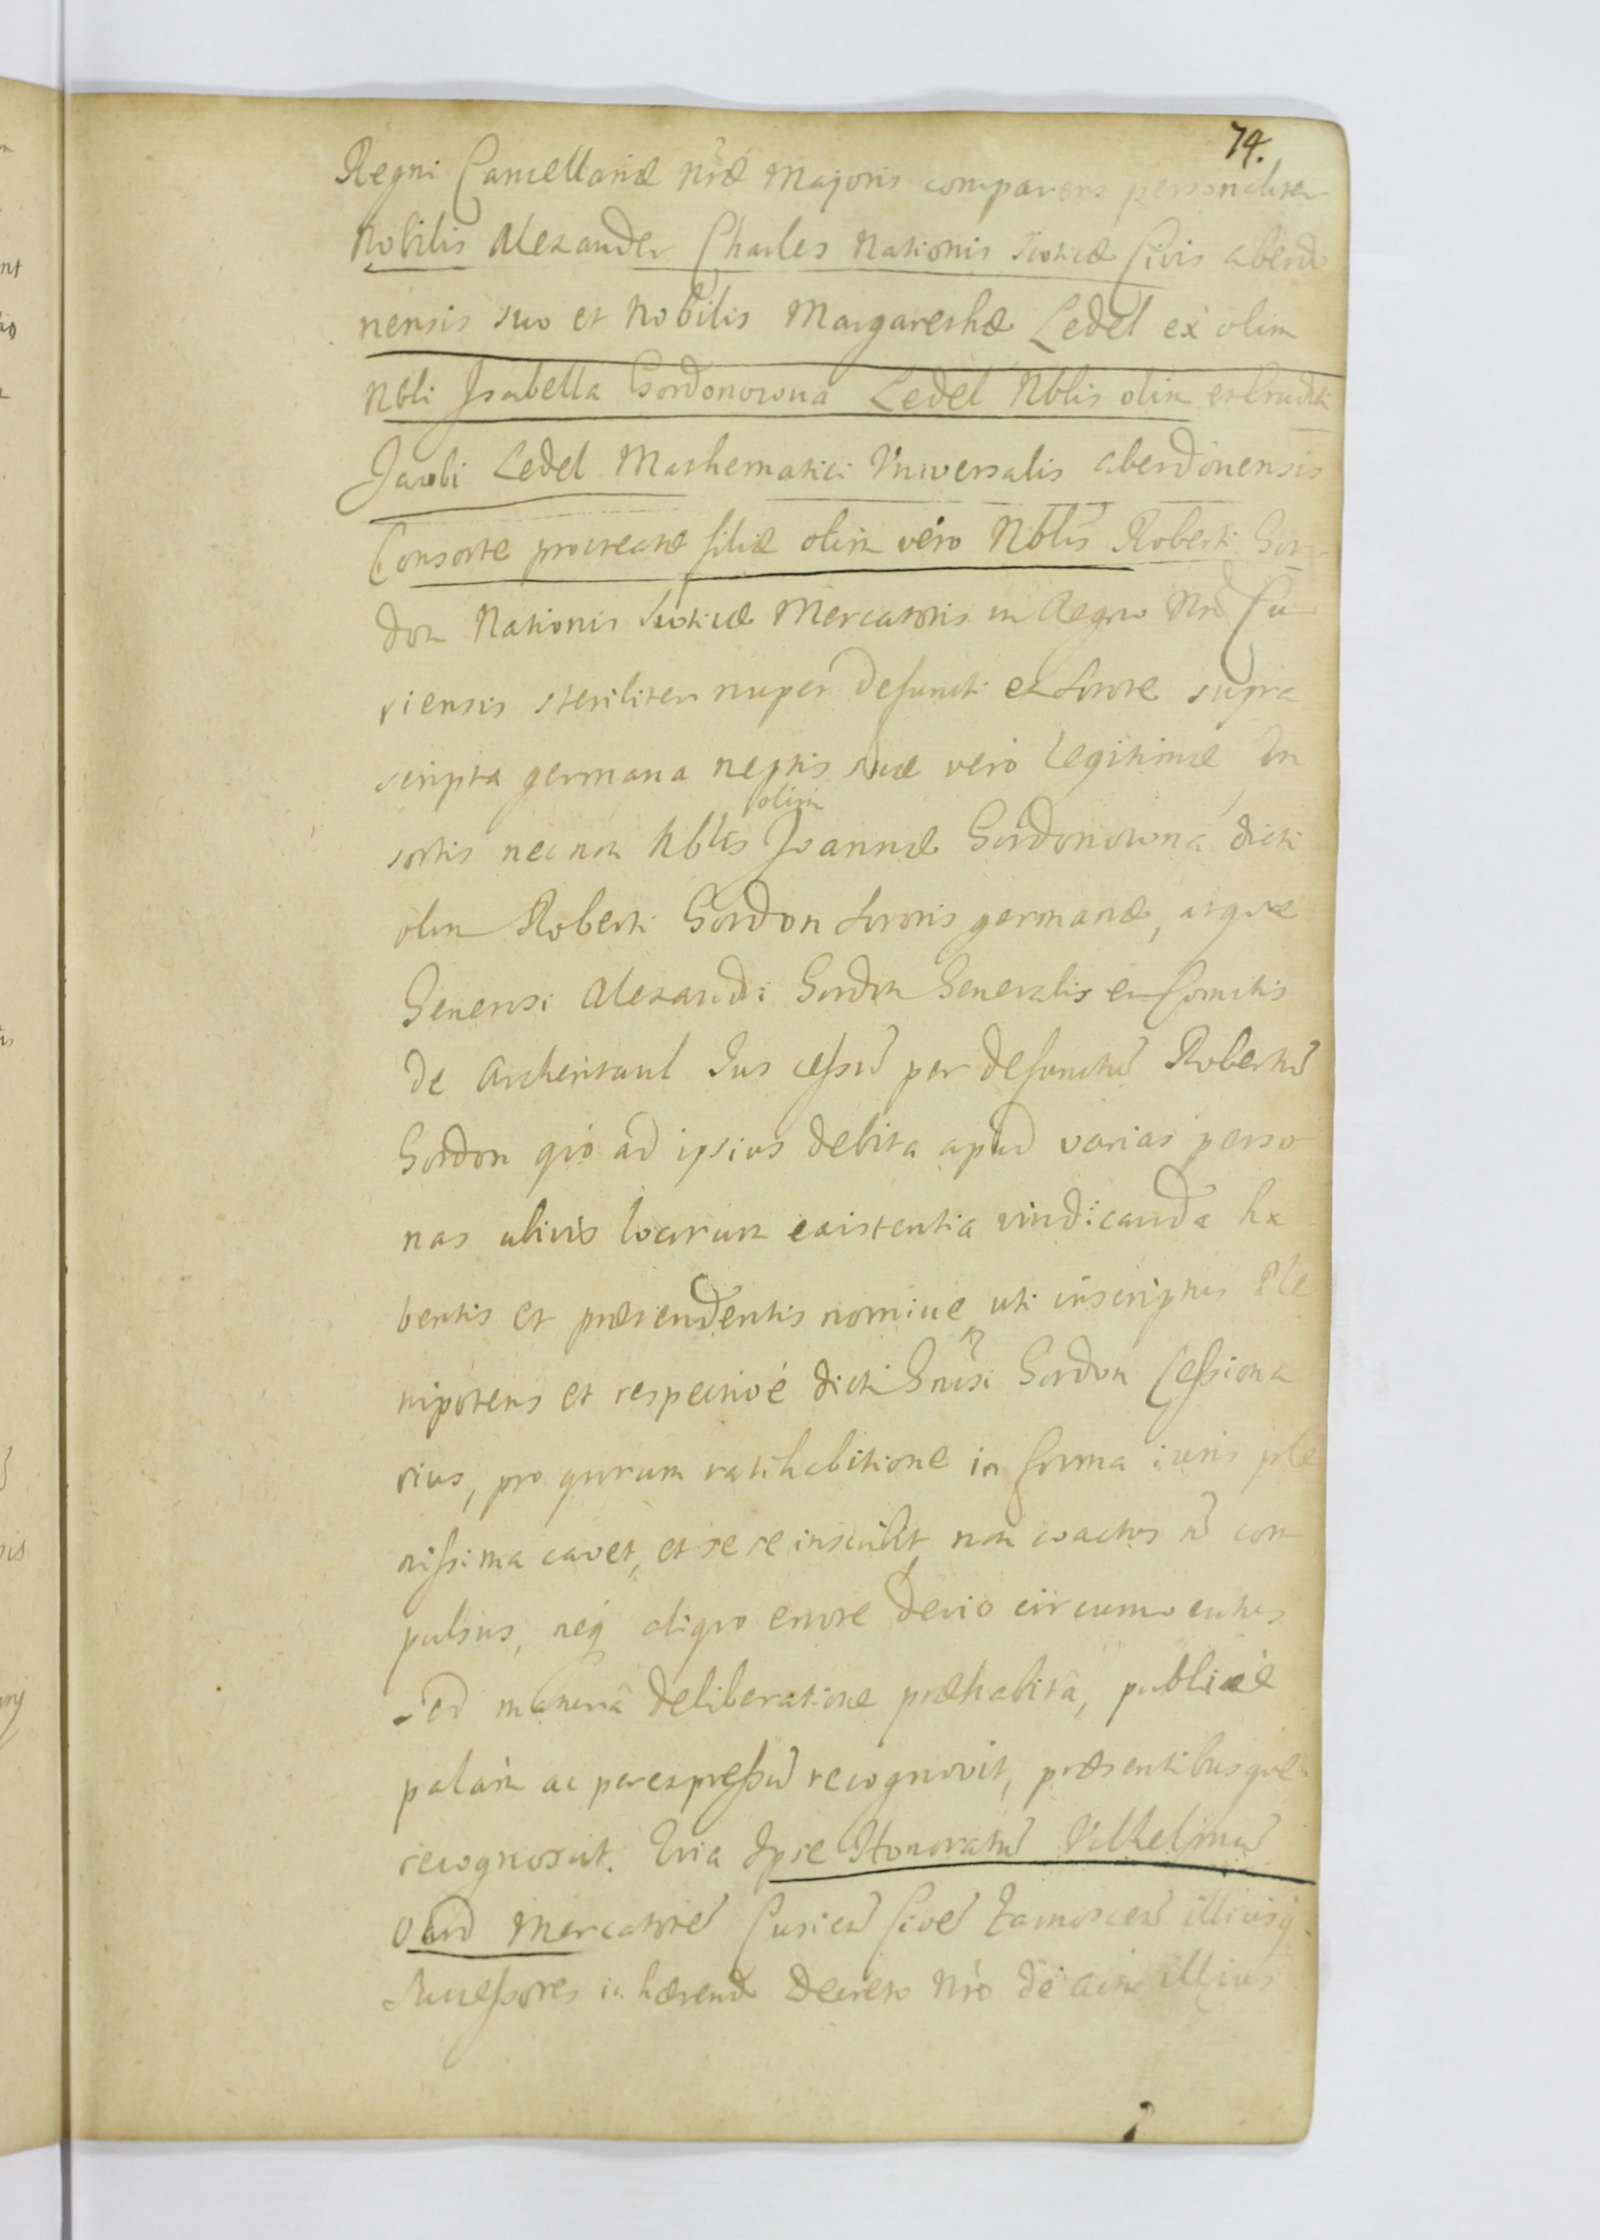 74.
Regni Cancellariæ Nræ Majoris comparens personaliter
Nobilis Alexander Charles Nationis Scoticæ Civis aberdo
nensis suo et Nobilis Margarethæ Ledel ex olim
Nbli Isabella Gordonowna Ledel Nblis olim et
Jacobi Ledel Mathematici Vniversalis aberdonensis
Consorte procreatæ filiæ olim vero Nblis Roberti Gor
don Nationis Scoticæ Mercatoris in Regno Nro Cu
riensis steriliter nuper defuncti ex Sorore supra
scripta germana neptis suæ vero legitimæ In
olim
sortis nec non Nblis Joannæ Gordonowna dicti
olim Roberti Gordon Sororis germanæ, atque
Generosi Alexandri Gordon Generalis et Comitis
de Archentaul Jus cessũ per defunctũ Robertũ
Gordon qvo ad ipsius debita apud varias perso
nas locorum existentia vindicanda ha
bentis et prætendentis nomine uti inscriptus Ple
nipotens et respective dicti Gnrsi Gordon Cessiona
rius, pro qvorum ratihabitione in forma iuris ple
nissima cavet, et se se inscribit non coactus ũ com
pulsus, neq aliqvo errore devio circumventus
sed matura deliberatione præhabita, publice
palam ac per expressũ recognovit, præsentibusqve
recognoscit. Qvia Ipse Honoratũ Vilhelmũ
Oard Mercatorẽ Curiẽ Civẽ Zamoscẽ illiusq
Successores in hærend Decreto Nro de illius